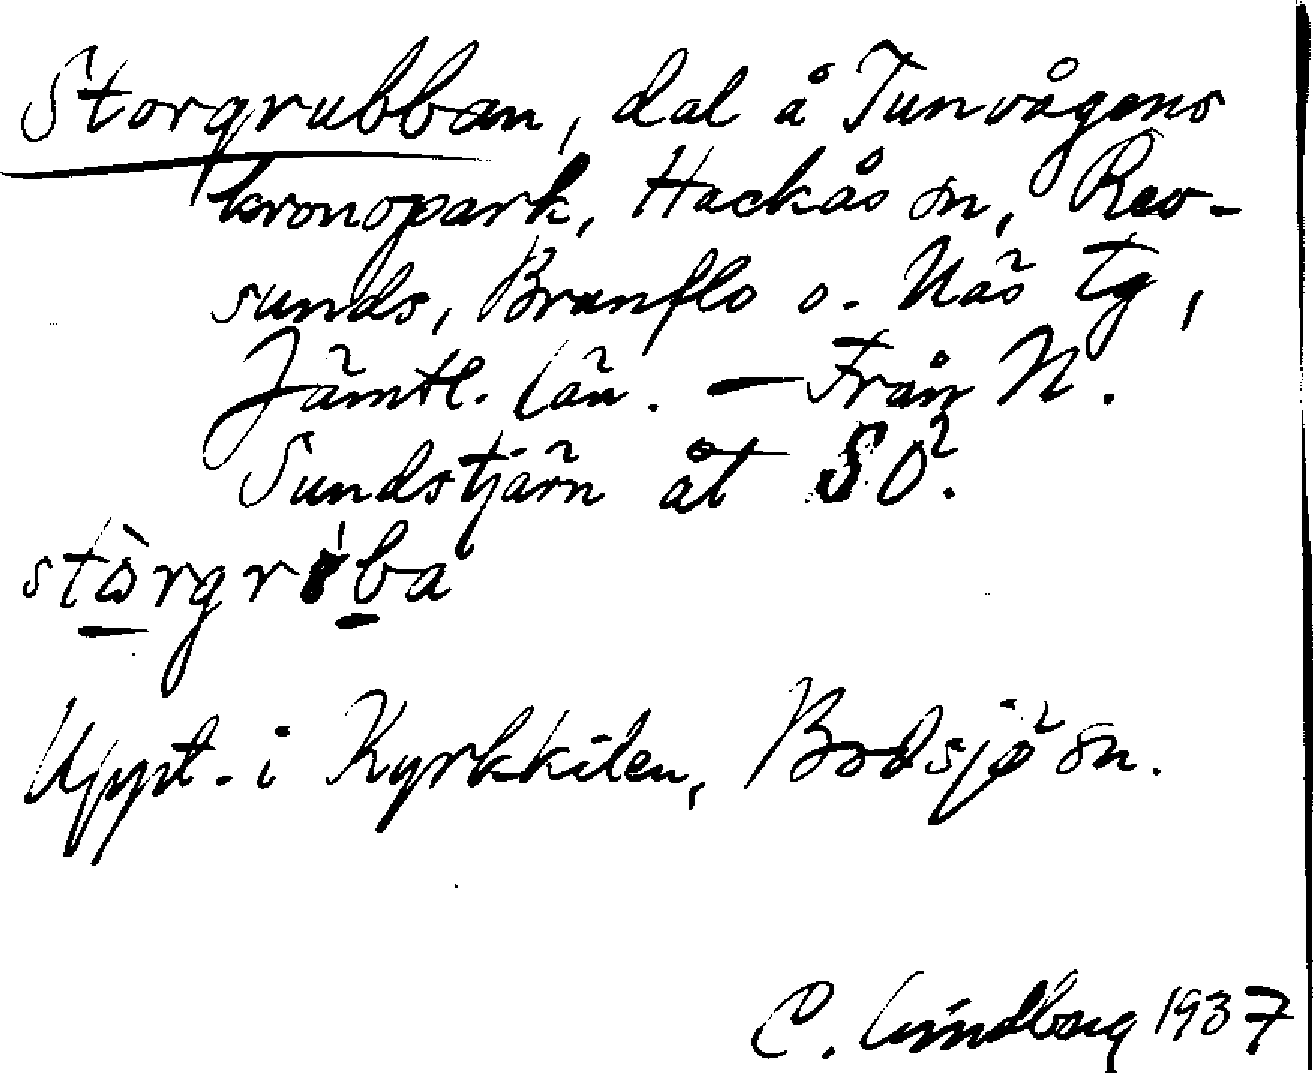 Storgrubban, dal å Tunvågens
kronopark, Hackås sn, Rev-
sunds, Brunflo o. Näs tg,
Jämtl. län. — Från N.
Sundstjärn åt SO.
Uppt. i Kyrkkilen, Bodsjö sn.
C. Lindberg 1937